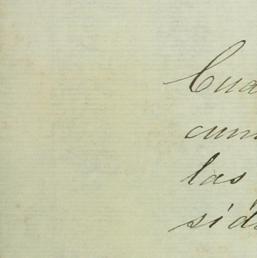 Cua
cum
las
sid